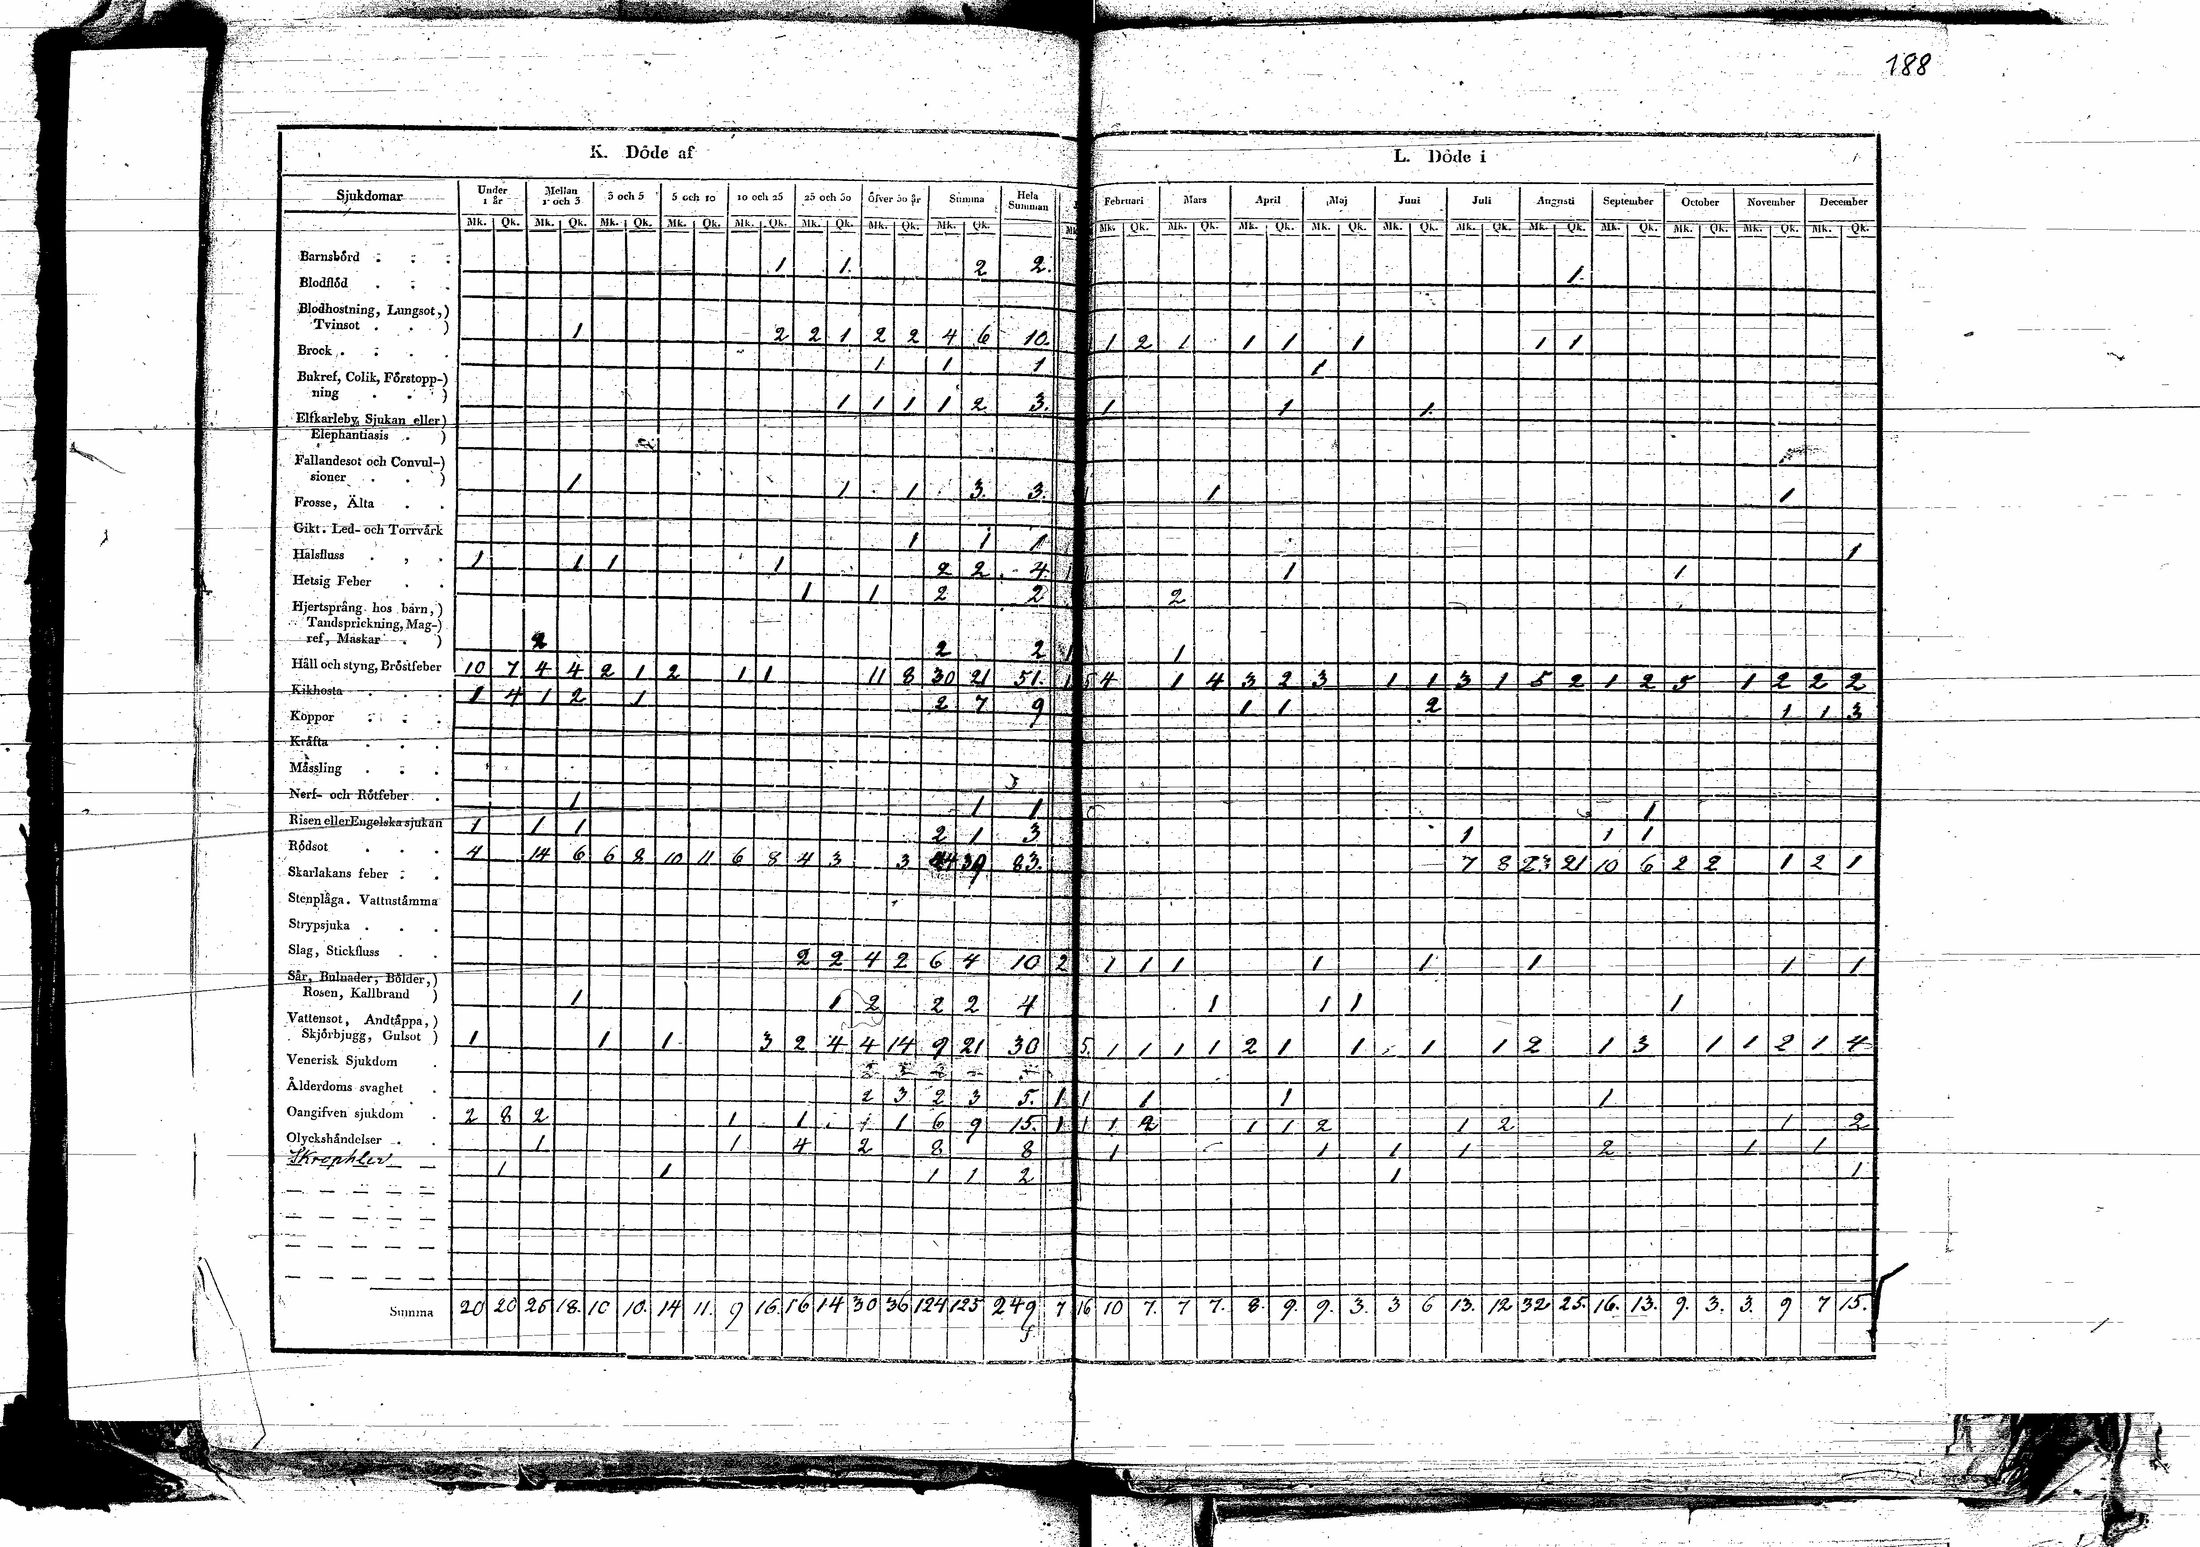 188
K. Döde af
L. Döde i
Sjukdomar Under 1 år Mellan 1 och 3 3 och 5 5 och 10 10 och 25 25 och 50 Öfver 50 år Summa Hela Summan Februari Mars April Maj Juni Juli Augusti September October November December
Mk. Qk. Mk. Qk. Mk. Qk. Mk. Qk. Mk. Qk. Mk. Qk. Mk. Qk. Mk. Qk. Mk. Mk. Qk. Mk. Qk. Mk. Qk. Mk. Qk. Mk. Qk. Mk. Qk. Mk. Qk. Mk. Qk. Mk. Qk. Mk. Qk. Mk. Qk.
Barnsbörd 1 1. 2 2. 1.
Blodflöd
Blodhostning, Lungsot,)
Tvinsot ) 1 2 2 1 2 2 4 6 10. 1 2 1 1 1 1 1 1
Brock 1 1 1 1
Bukref, Colik, Förstopp-)
ning ) 1 1 1 1 2 3. 1 1 1.
Elfkarleby Sjukan eller)
Elephantiasis )
Fallandesot och Convul-)
sioner ) 1 1 1 3. 3. 1 1 1
Frosse, Älta
Gikt. Led- och Torrvärk 1 1 1 1
Halsfluss 1 1 1 1 2 2 4 1 1 1
Hetsig Feber 1 1 2 2 2
Hjertsprång hos barn,)
Tandsprickning, Mag-)
ref, Maskar ) 2 2 2 1 1
Håll och styng, Bröstfeber 10 7 4 4 2 1 2 1 1 11 8 30 21 51. 1 5 4 1 4 3 2 3 1 1 3 1 5 2 1 2 5 1 2 2 2
Kikhosta 1 4 1 2 1 2 7 9 1 1 2 1 1 3
Koppor
Kräfta
Mässling
Nerf- och Rötfeber 1 1 1 1
Risen eller Engelska sjukan 1 1 1 2 1 3 1 1 1
Rödsot 4 14 6 6 8 10 11 6 8 4 3 3 44 39 83. 7 8 23 21 10 6 2 2 1 2 1
Skarlakans feber
Stenplåga. Vattnstämma
Strypsjuka
Slag, Stickfluss 2 2 4 2 6 4 10 2 1 1 1 1 1 1 1 1
Sår, Bulnader, Bölder,)
Rosen, Kallbrand ) 1 1 2 2 2 4 1 1 1 1
Vattensot, Andtäppa,)
Skjörbjugg, Gulsot ) 1 1 1 3 2 4 4 14 9 21 30 5. 1 1 1 1 2 1 1 1 1 2 1 3 1 1 2 1 4
Venerisk Sjukdom
Ålderdoms svaghet 2 3 2 3 5. 1 1 1 1 1
Oangifven sjukdom 2 8 2 1 1 1 1 6 9 15. 1 1 1 2 1 1 2 1 2 1 2
Olyckshändelser 1 1 4 2 8 8 1 1 1 1 2 1 1
Skrophler 1 1 1 1 2 1 1
Summa 20 20 26 18. 10 10. 14 11. 9 16. 16 14 30 36 124 125 249 7 16 10 7. 7 7. 8. 9. 9. 3. 3 6 13. 12 32 25. 16. 13. 9. 3. 3. 9 7 15.